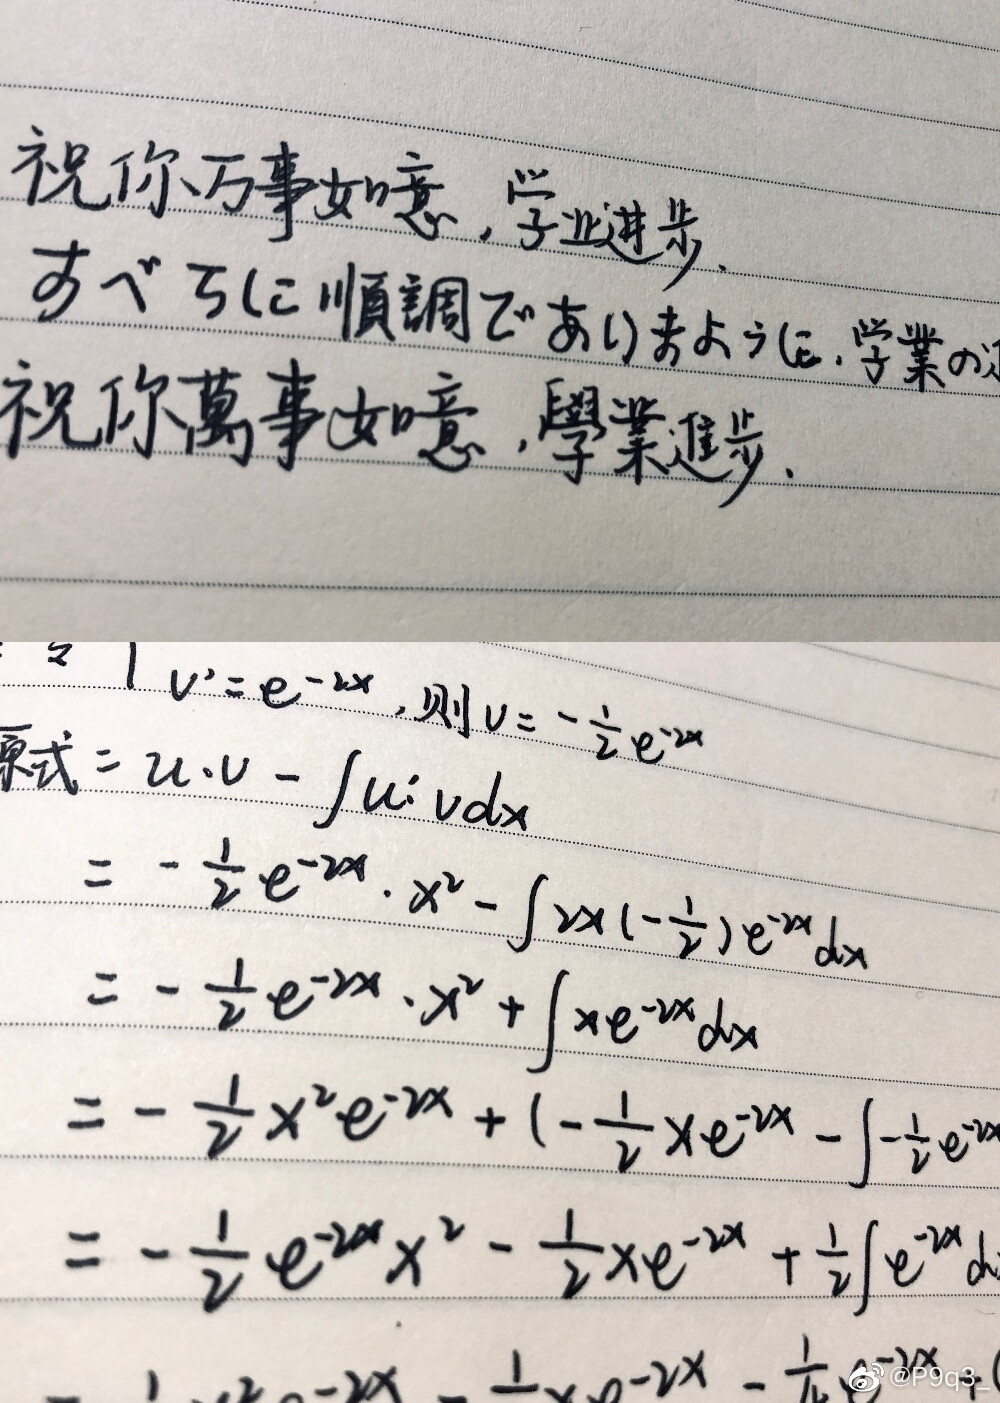 祝你万事如意,学业进步.
すべてに順調でありまように.学業の
祝你萬事如意,學業進步.
v'=e^{-2x},则v=-\frac{1}{2}e^{-2x}
原式=u·v-∫u'·vdx
=-\frac{1}{2}e^{-2x}·x^2-∫2x(-\frac{1}{2})e^{-2x}dx
=-\frac{1}{2}e^{-2x}·x^2+∫xe^{-2x}dx
=-\frac{1}{2}x^2e^{-2x}+(-\frac{1}{2}xe^{-2x}-∫-\frac{1}{2}e^{-2x}
=-\frac{1}{2}e^{-2x}x^2-\frac{1}{2}xe^{-2x}+\frac{1}{2}∫e^{-2x}dx
@P9q3_